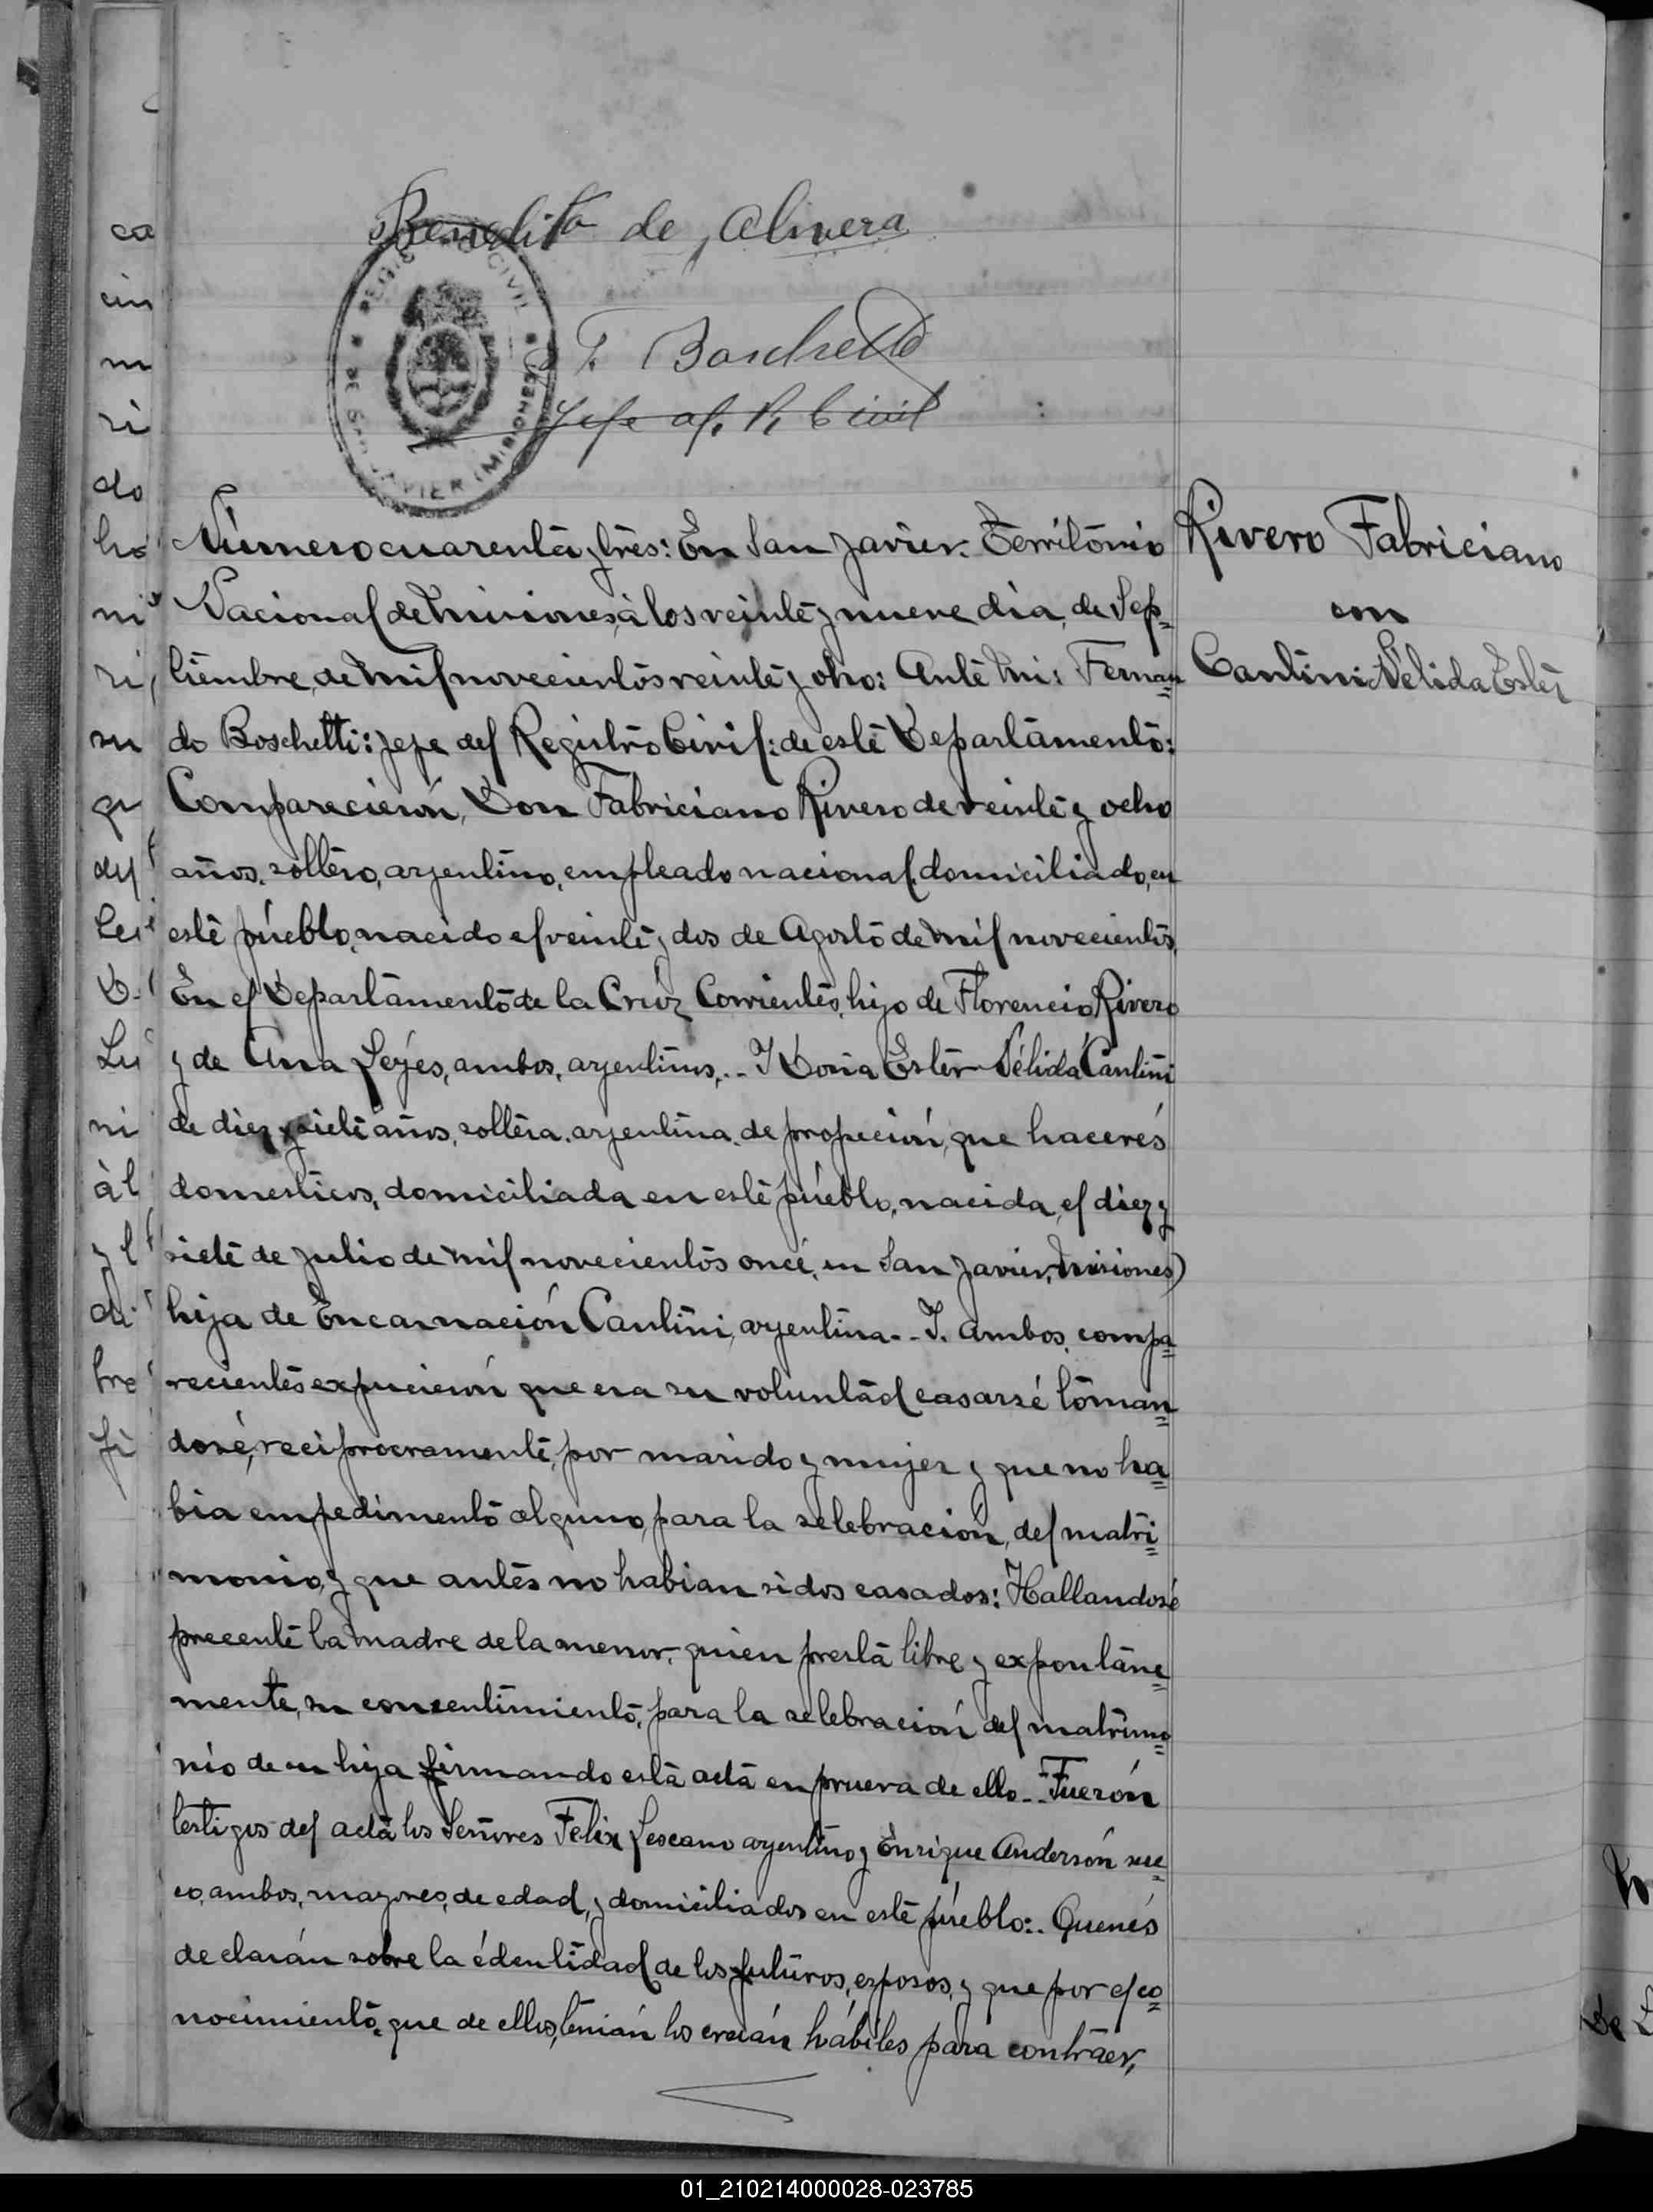 Benedita de Olivera
REGISTRO CIVIL
DE SAN JAVIER (MISIONES)
F. Boschetti
Jefe of. R. Civil
Número cuarenta y tres: En San Javier. Territorio
Nacional de Misiones, à los veinte y nueve dia, de Sep=
tiembre, de mil novecientos veinte y oho: Ante Mi: Fernan=
do Boschetti: jefe del Registro Civil: de este Departamento:
Comparecierón, Don Fabriciano Rivero de veinte y ocho
años, soltero, argentino, empleado nacional, domiciliado, en
este púeblo, nacido el veinte y dos de Agosto de mil novecientos,
En el Departamento de la Crúz Corrientes, hijo de Florencio Rivero
y de Ana Leýes, ambos, argentinos,.- I Doña Ester Nélida Cantini
de diez y siete años, soltera, argentina, de propeción, que hacerés
domesticos, domiciliada en este púeblo, nacida, el diez y
siete de julio de mil novecientos oncé, en San Javier, Misiones)
hija de Encarnación Cantini, argentina.- I. ambos, compa=
recientes expucierón que era su voluntad casarsé tóman=
dosé, reciprocramente, por marido y mujer y que no ha=
bia empedimento alguno, para la selebración, del matri=
monio, y que antes no habian sidos casados: Hallandosé
precente la madre de la menor, quien presta libre y expontáne=
mente, su concentimiento, para la selebración del matrimo=
nio de su hija firmando esta acta en prueva de ello.- Fuerón
testigos del acta los Señores Felix Lescano argentino y Enrique Andersón sue=
co, ambos, mayores, de edad, y domiciliados en este púeblo:. Quenés
declarán sobre la édentidad de los futúros, esposos, y que por el co=
nocimiento, que de ellos, tenián los creián hábiles para contráer,
Rivero Fabriciano
con
Cantini Nélida Ester
ca
cin
m
ri
do
ho
ni
ri,
su
qu
del
Lu
ni
àl
y l
di
bre
fi